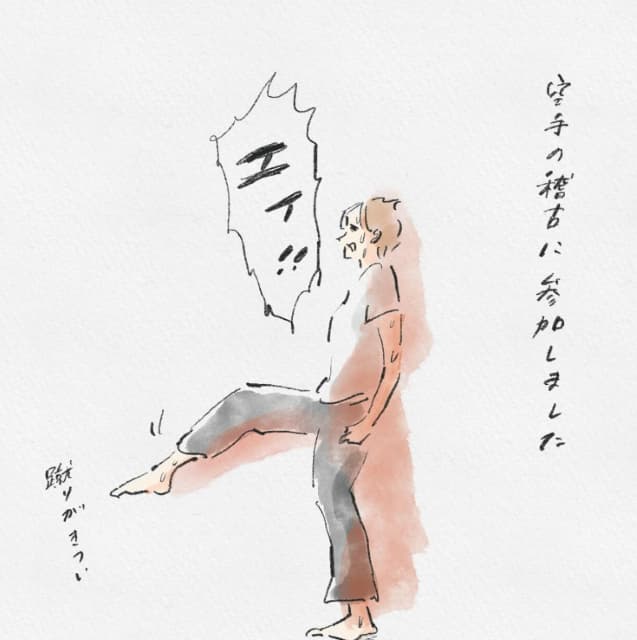 空手の稽古に参加しました
エイ!!
蹴りがきつい